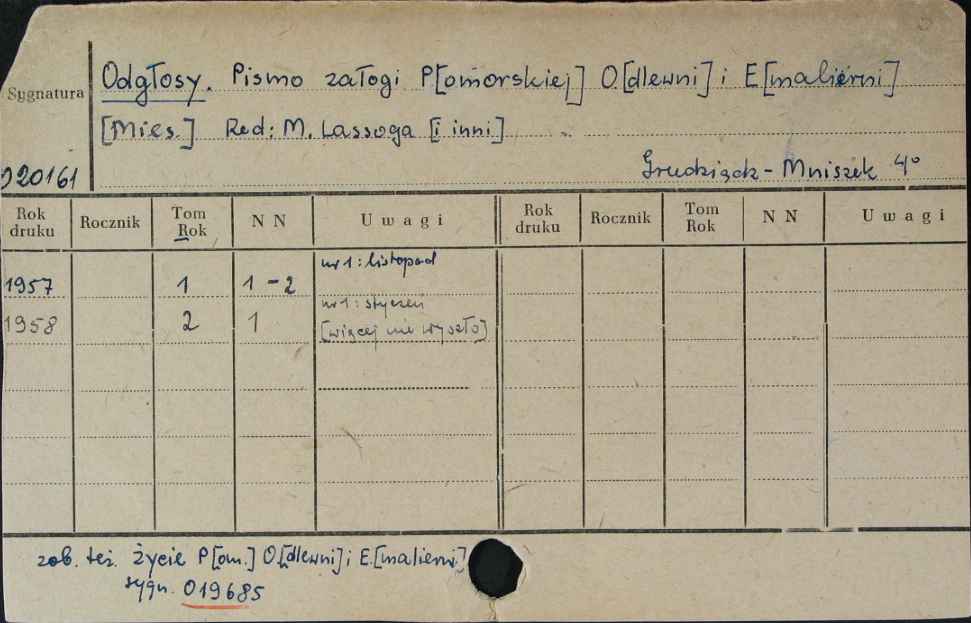 Odgłosy. Pismo załogi P[omorskiej] O[dlewni] i E[malierni]
Sygnatura
[Mies.] Red: M. Lassoga [i inni]
Grudziądz - Mniszek 4°
020161
Rok druku Rocznik Tom Rok N N Uwagi Rok druku Rocznik Tom Rok N N Uwagi
nr 1: listopad
1957 1 1-2
nr 1: styczeń
1958 2 1 [więcej nie wyszło]
zob. też. Życie P[om.] O[dlewni] i E.[malierni]
sygn. 019685